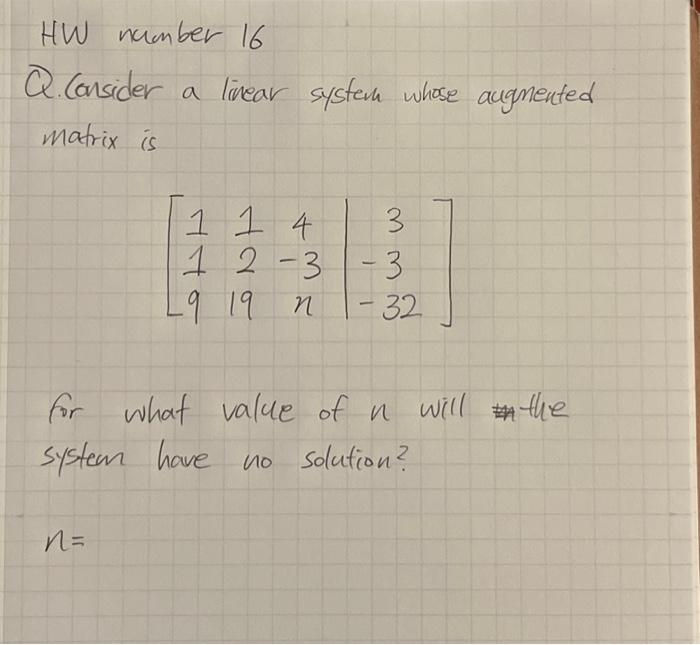 HW number 16
Q. Consider a linear system whose augmented
matrix is
1 1 4 | 3
1 2 -3 | -3
9 19 n | -32
for what value of n will the
system have no solution?
n=